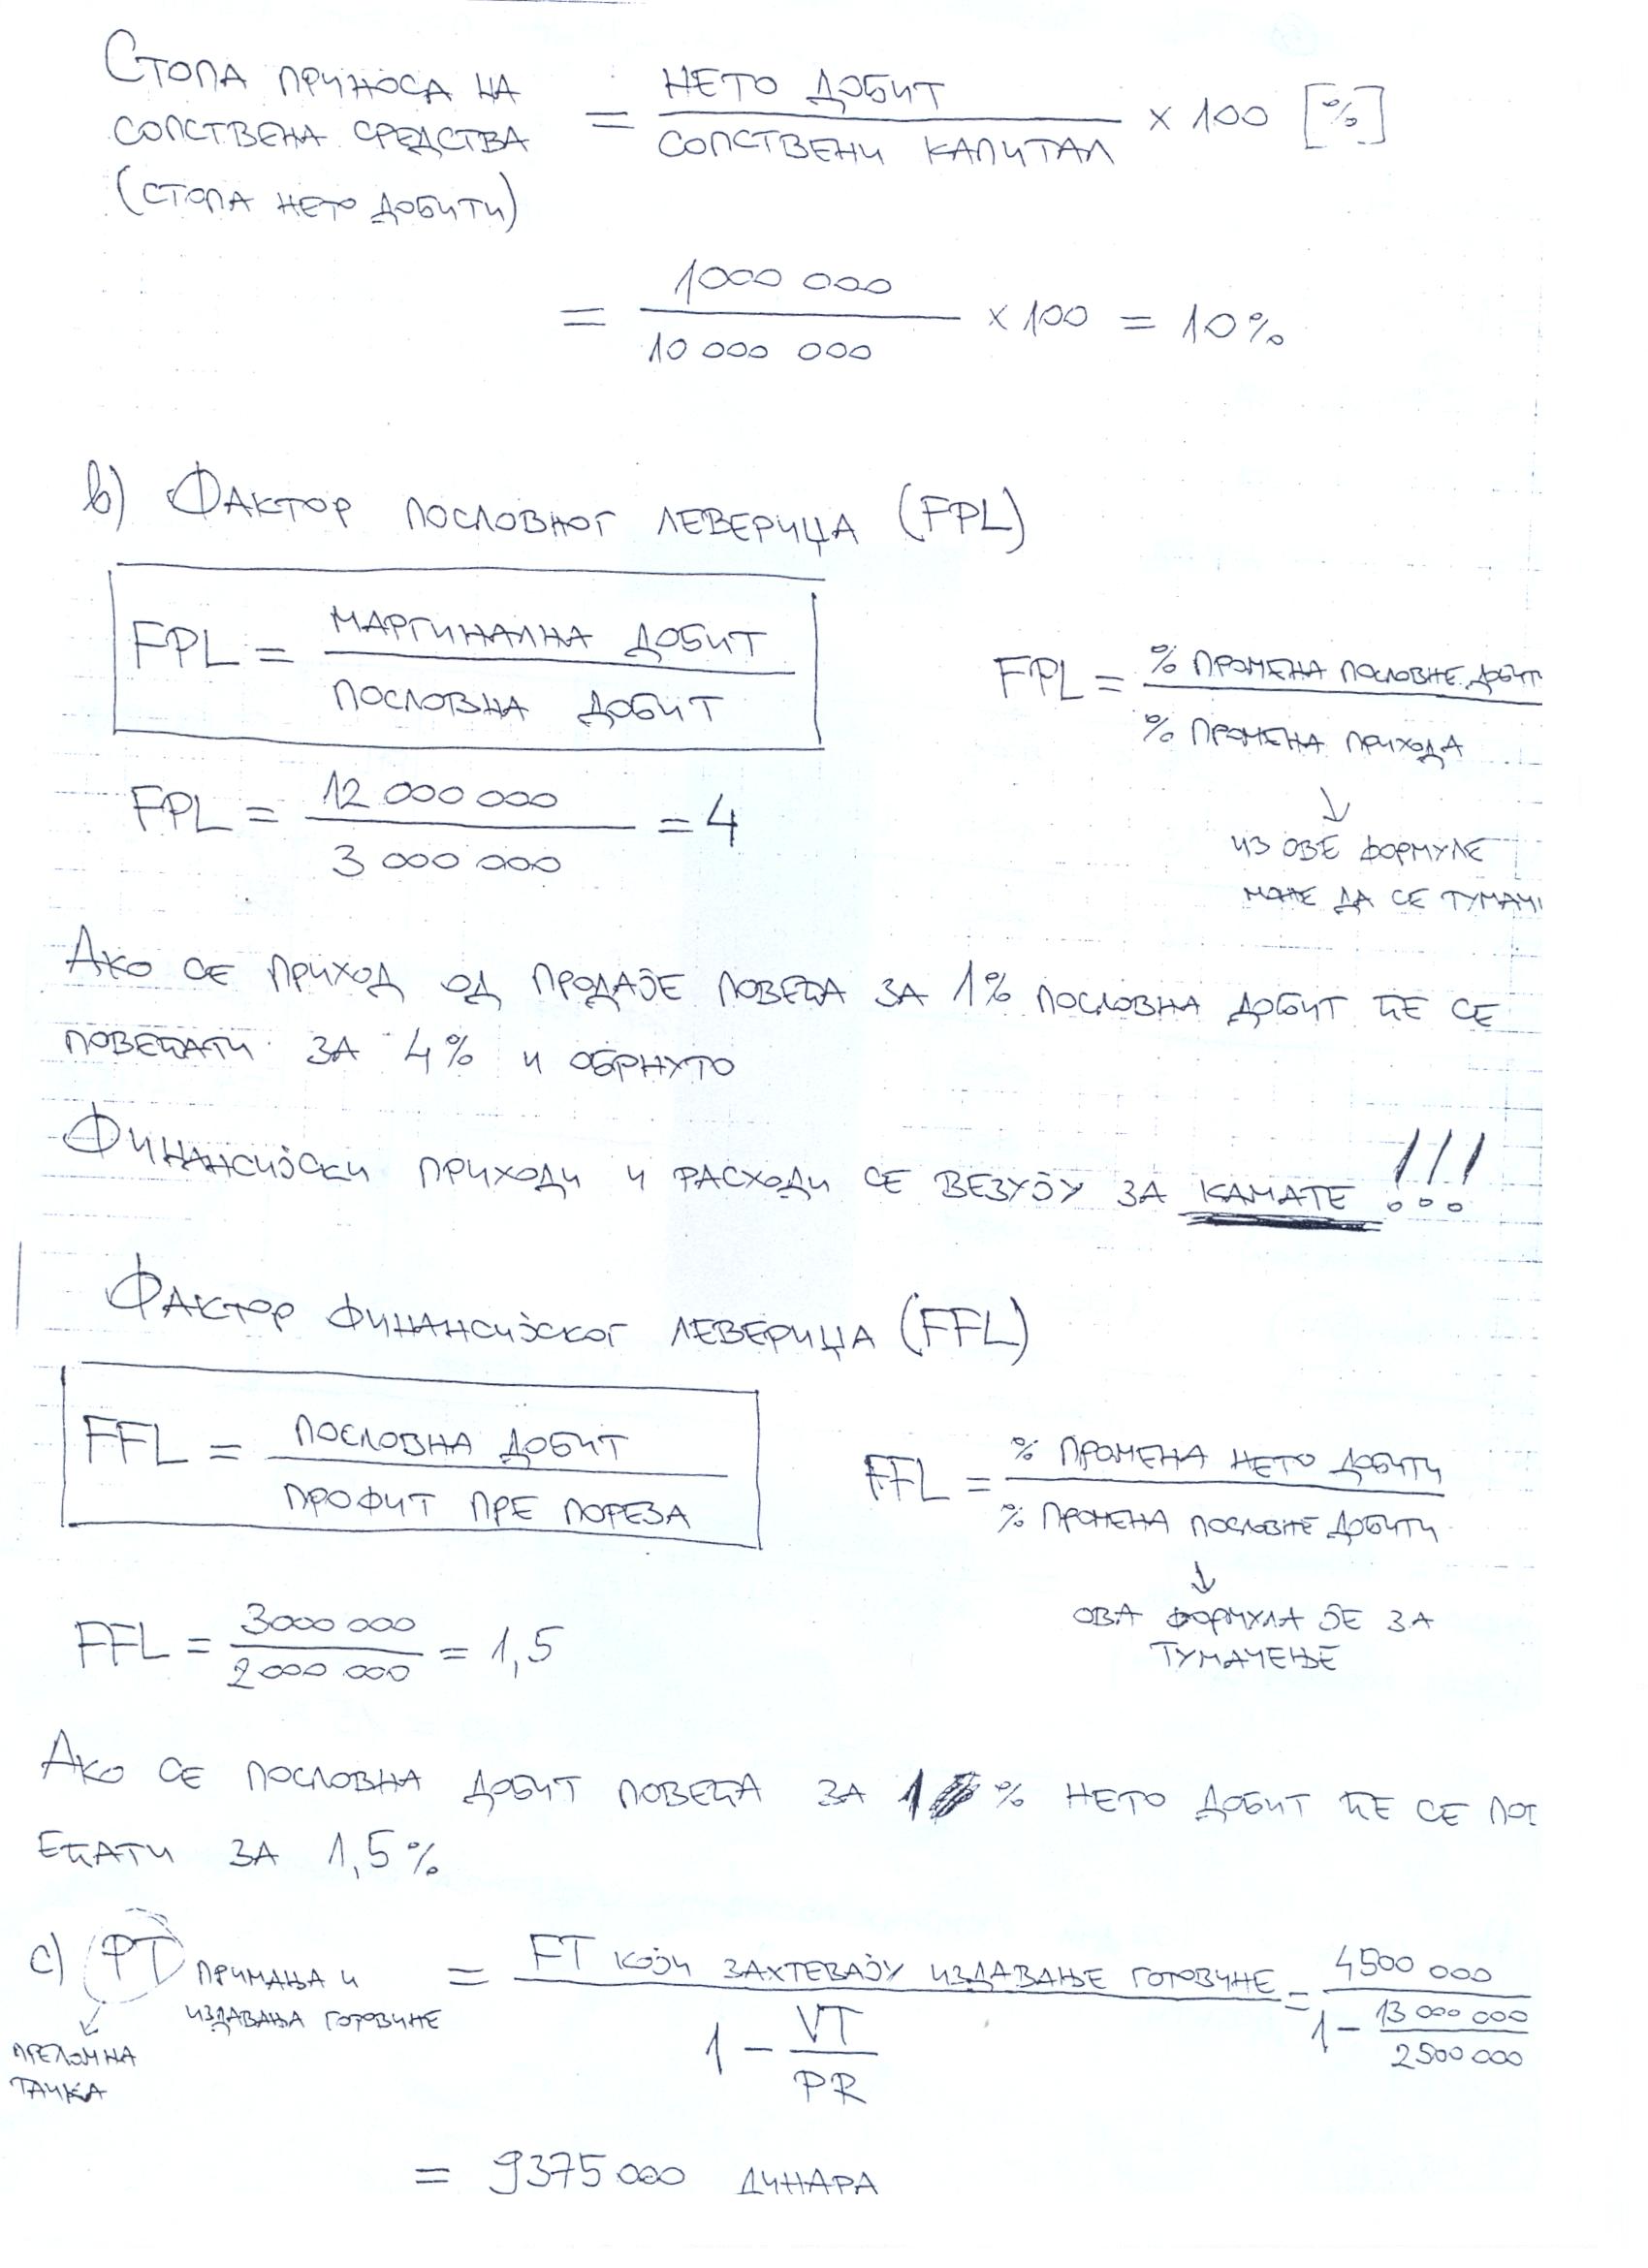 Стопа приноса на
сопствена средства
(стопа нето добити)
= нето добит / сопствени капитал × 100 [%]
= 1000 000 / 10 000 000 × 100 = 10%
b) Фактор пословног левериџа (FPL)
FPL = маргинална добит / пословна добит
FPL = % промена пословне добит / % промена прихода
↓
из ове формуле
може да се тумачи
FPL = 12 000 000 / 3 000 000 = 4
Ако се приход од продаје повећа за 1% пословна добит ће се
повећати за 4% и обрнуто
Финансијски приходи и расходи се везују за камате !!!
Фактор финансијског левериџа (FFL)
FFL = пословна добит / профит пре пореза
FFL = % промена нето добити / % промена пословне добити
↓
ова формула је за
тумачење
FFL = 3000 000 / 2 000 000 = 1,5
Ако се пословна добит повећа за 1 % нето добит ће се пов
ећати за 1,5%
c) PT примања и
издавања готовине
преломна
тачка
= FT који захтевају издавање готовине / 1 - VT / PR = 4500 000 / 1 - 13 000 000 / 2500 000
= 9375 000 динара